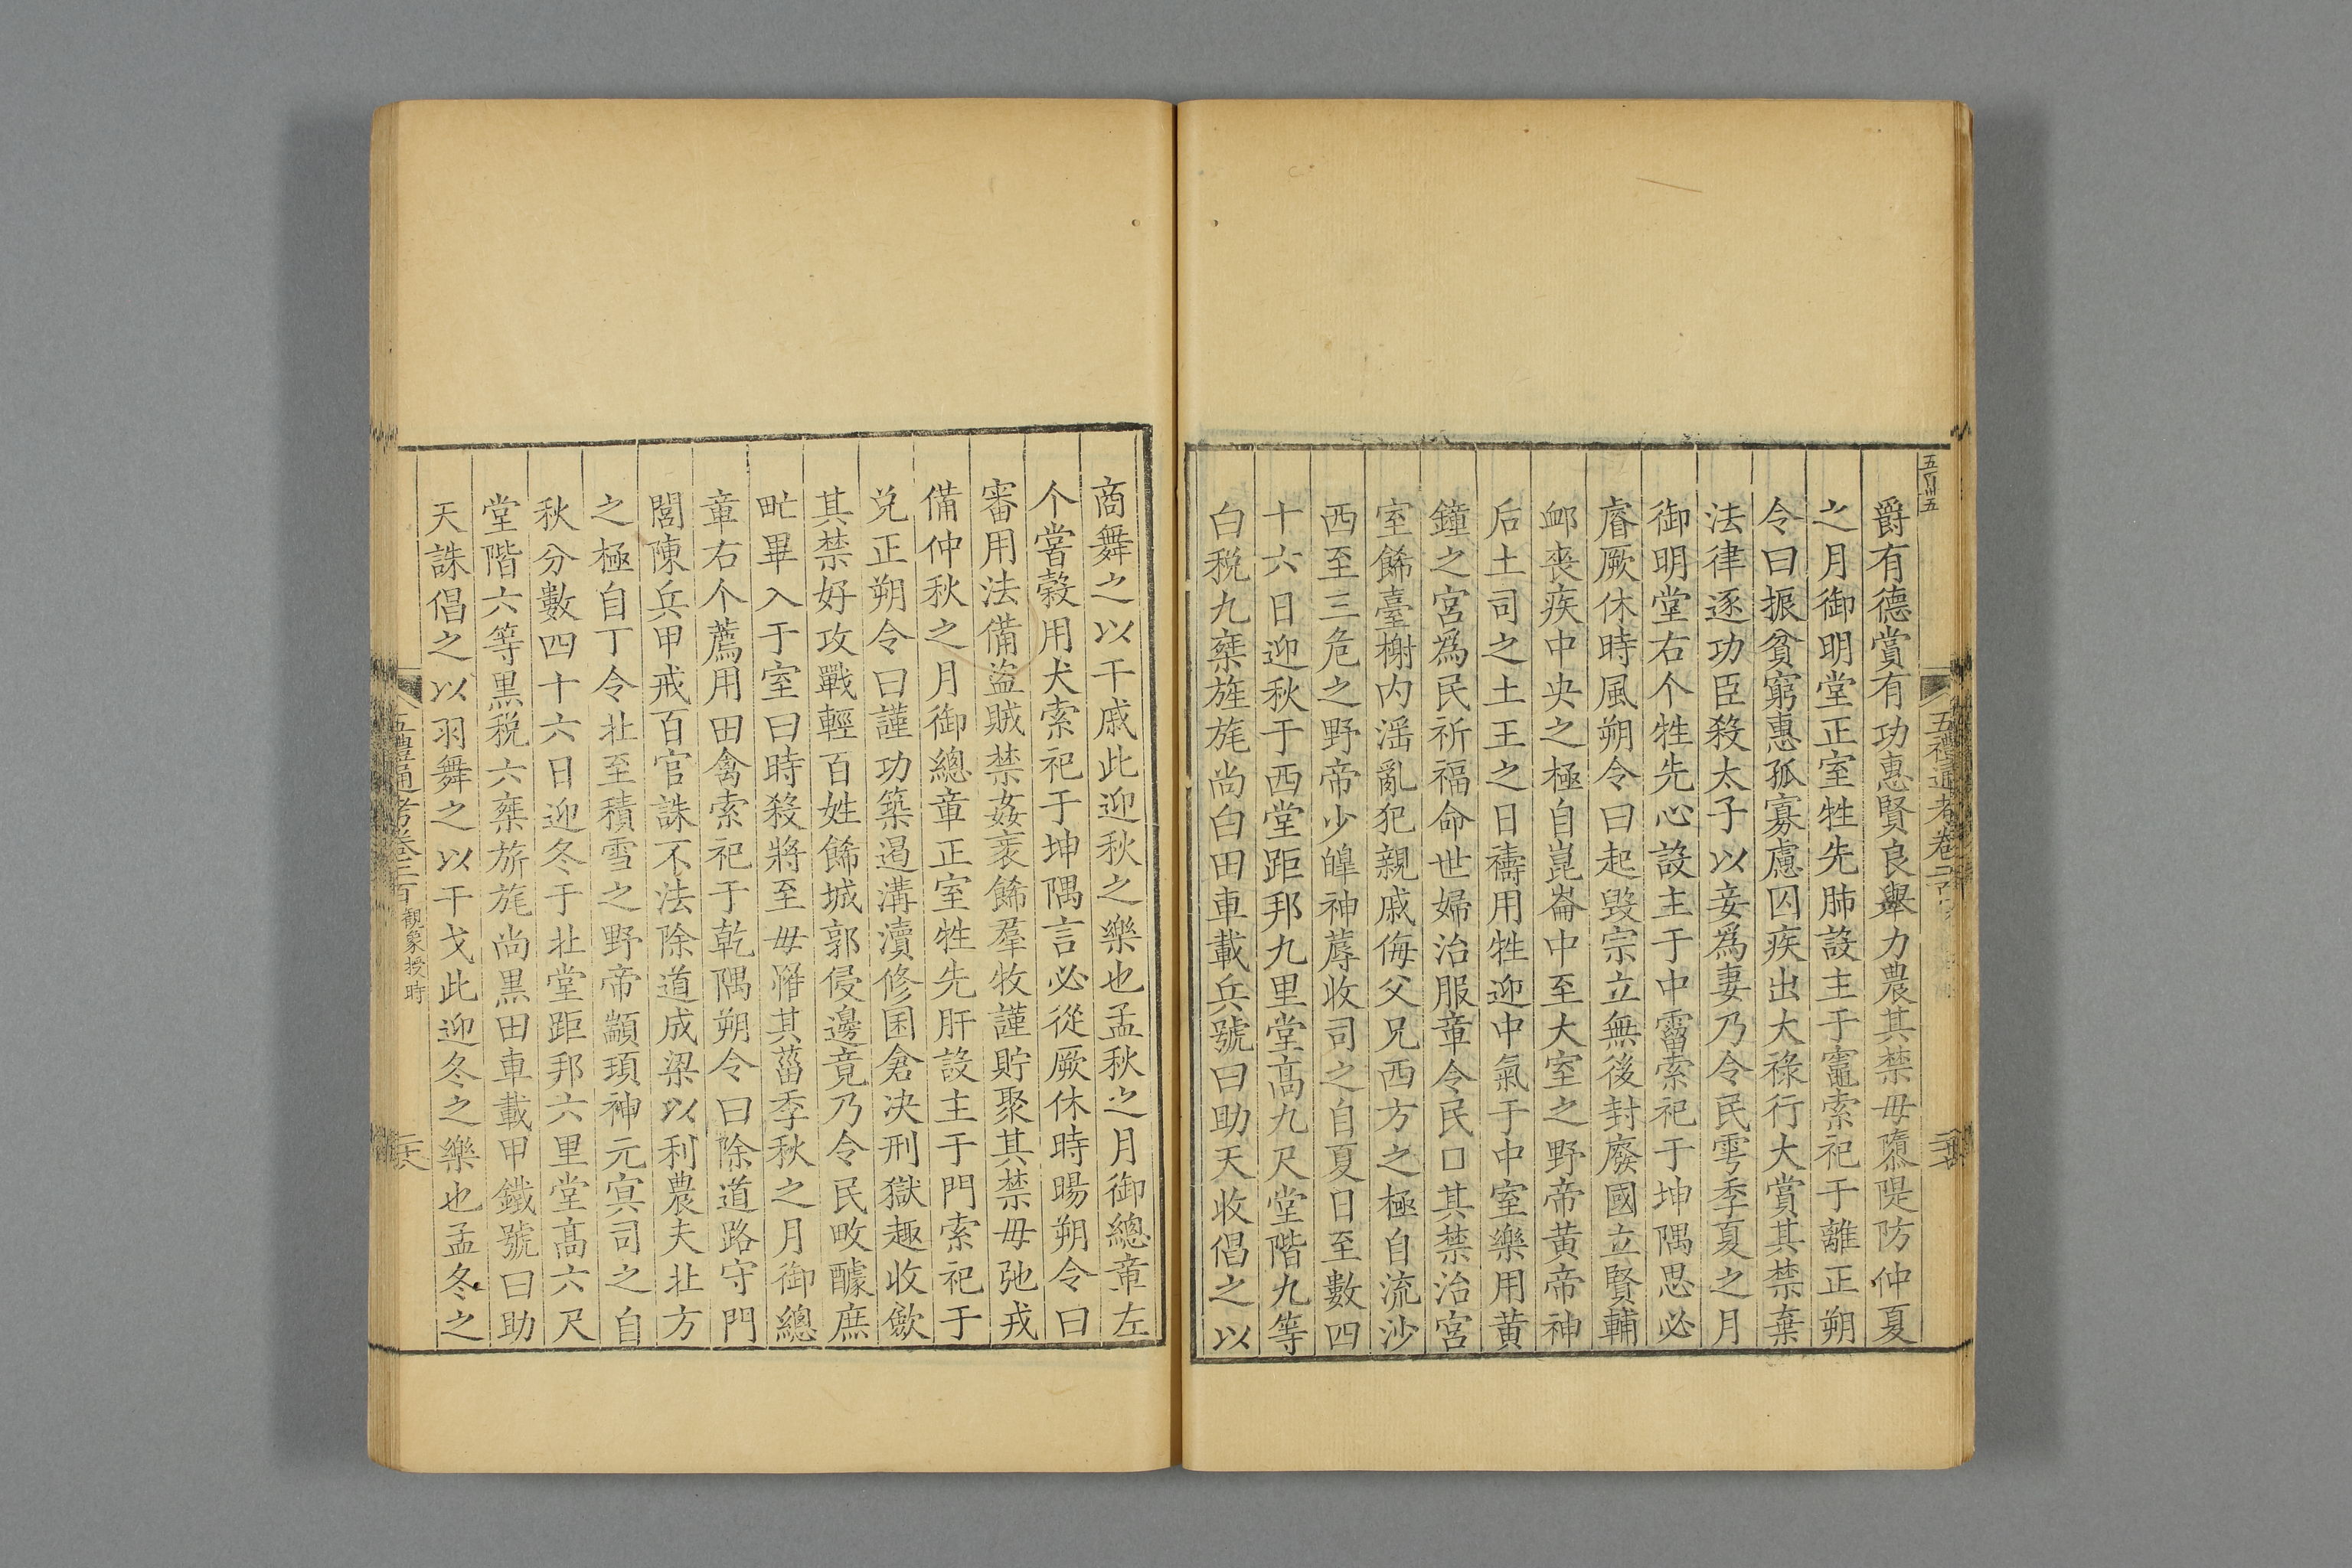 五百卅五
五禮通考卷二百
爵有德賞有功惠賢良舉力農其禁毋隳隄防仲夏
之月御明堂正室牲先肺設主于竈索祀于離正朔
令曰振貧窮惠孤寡慮囚疾出大祿行大賞其禁棄
法律逐功臣殺太子以妾爲妻乃令民雩季夏之月
御明堂右个牲先心設主于中霤索祀于坤隅思必
睿厥休時風朔令曰起毀宗立無後封廢國立賢輔
䘏喪疾中央之極自崑崙中至大室之野帝黃帝神
后土司之土王之日禱用牲迎中氣于中室樂用黃
鐘之宮爲民祈福命世婦治服章令民口其禁治宮
室餙臺榭内滛亂犯親戚侮父兄西方之極自流沙
西至三危之野帝少皞神蓐收司之自夏日至數四
十六日迎秋于西堂距邦九里堂高九尺堂階九等
白税九椉旌旄尚白田車載兵號曰助天收倡之以
商舞之以干戚此迎秋之樂也孟秋之月御總章左
个嘗穀用犬索祀于坤隅言必從厥休時暘朔令曰
審用法備盜賊禁姦衺餙羣牧謹貯聚其禁毋弛戎
備仲秋之月御總章正室牲先肝設主于門索祀于
兌正朔令曰謹功築遏溝瀆修囷倉決刑獄趣收歛
其禁好攻戰輕百姓餙城郭侵邊竟乃令民畋醵庶
甿畢入于室曰時殺將至毋罹其菑季秋之月御總
章右个薦用田禽索祀于乾隅朔令曰除道路守門
閭陳兵甲戒百官誅不法除道成梁以利農夫北方
之極自丁令北至積雪之野帝顓頊神元冥司之自
秋分數四十六日迎冬于北堂距邦六里堂高六尺
堂階六等黑税六椉旂旄尚黑田車載甲鐵號曰助
天誅倡之以羽舞之以干戈此迎冬之樂也孟冬之
五禮通考卷二百 觀象授時